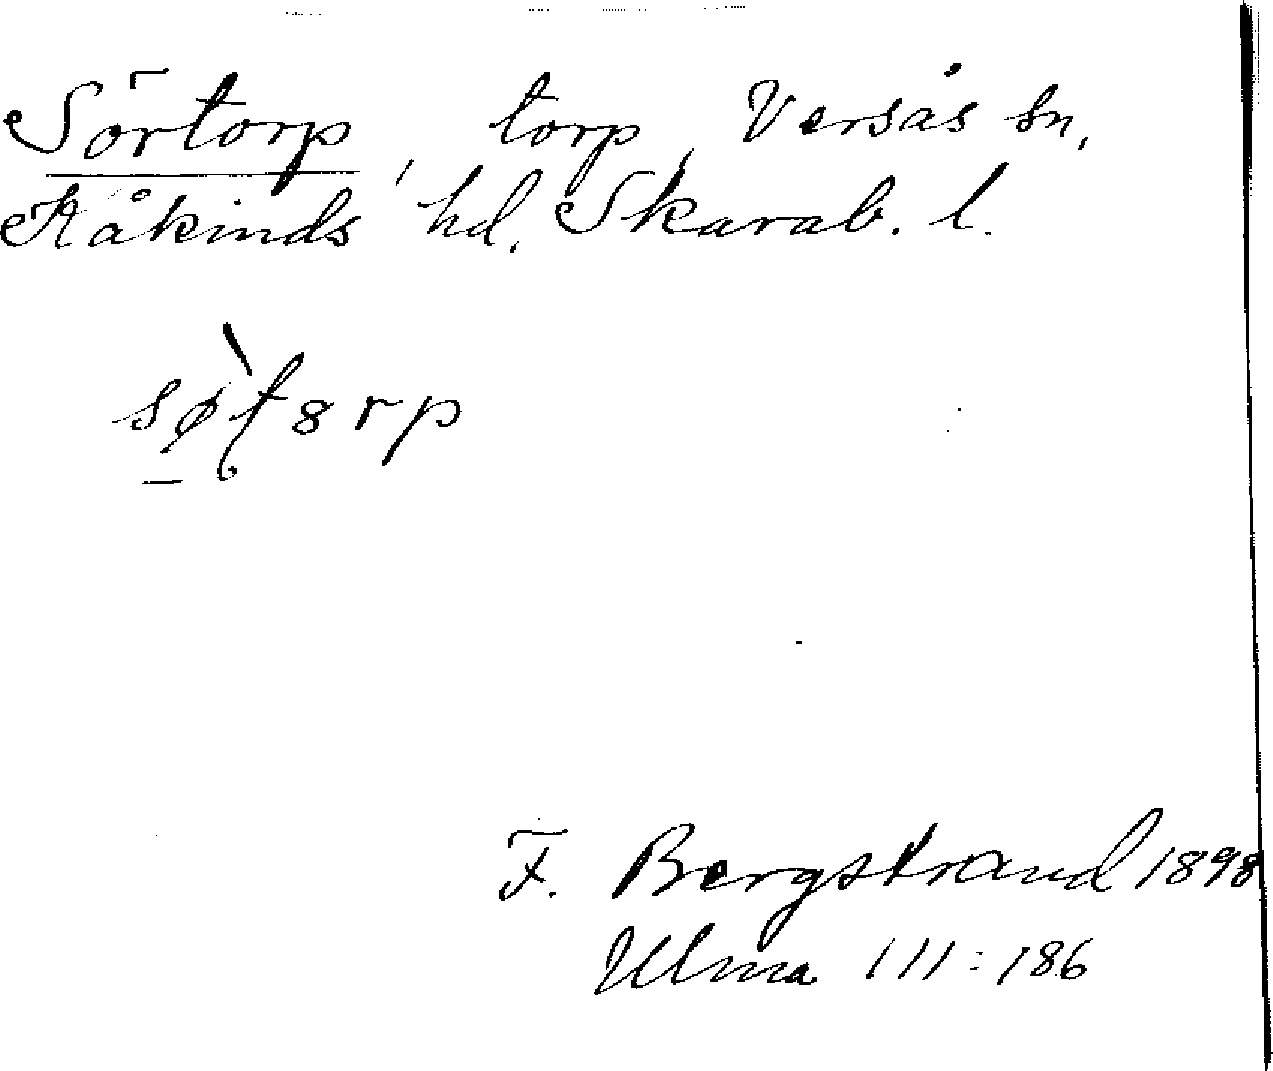 Sörtorp, torp, Versås sn,
Kåkinds hd, Skarab. l.
sø̀ʈ8rp
F. Bergstrand 1898
Ulma 111:186